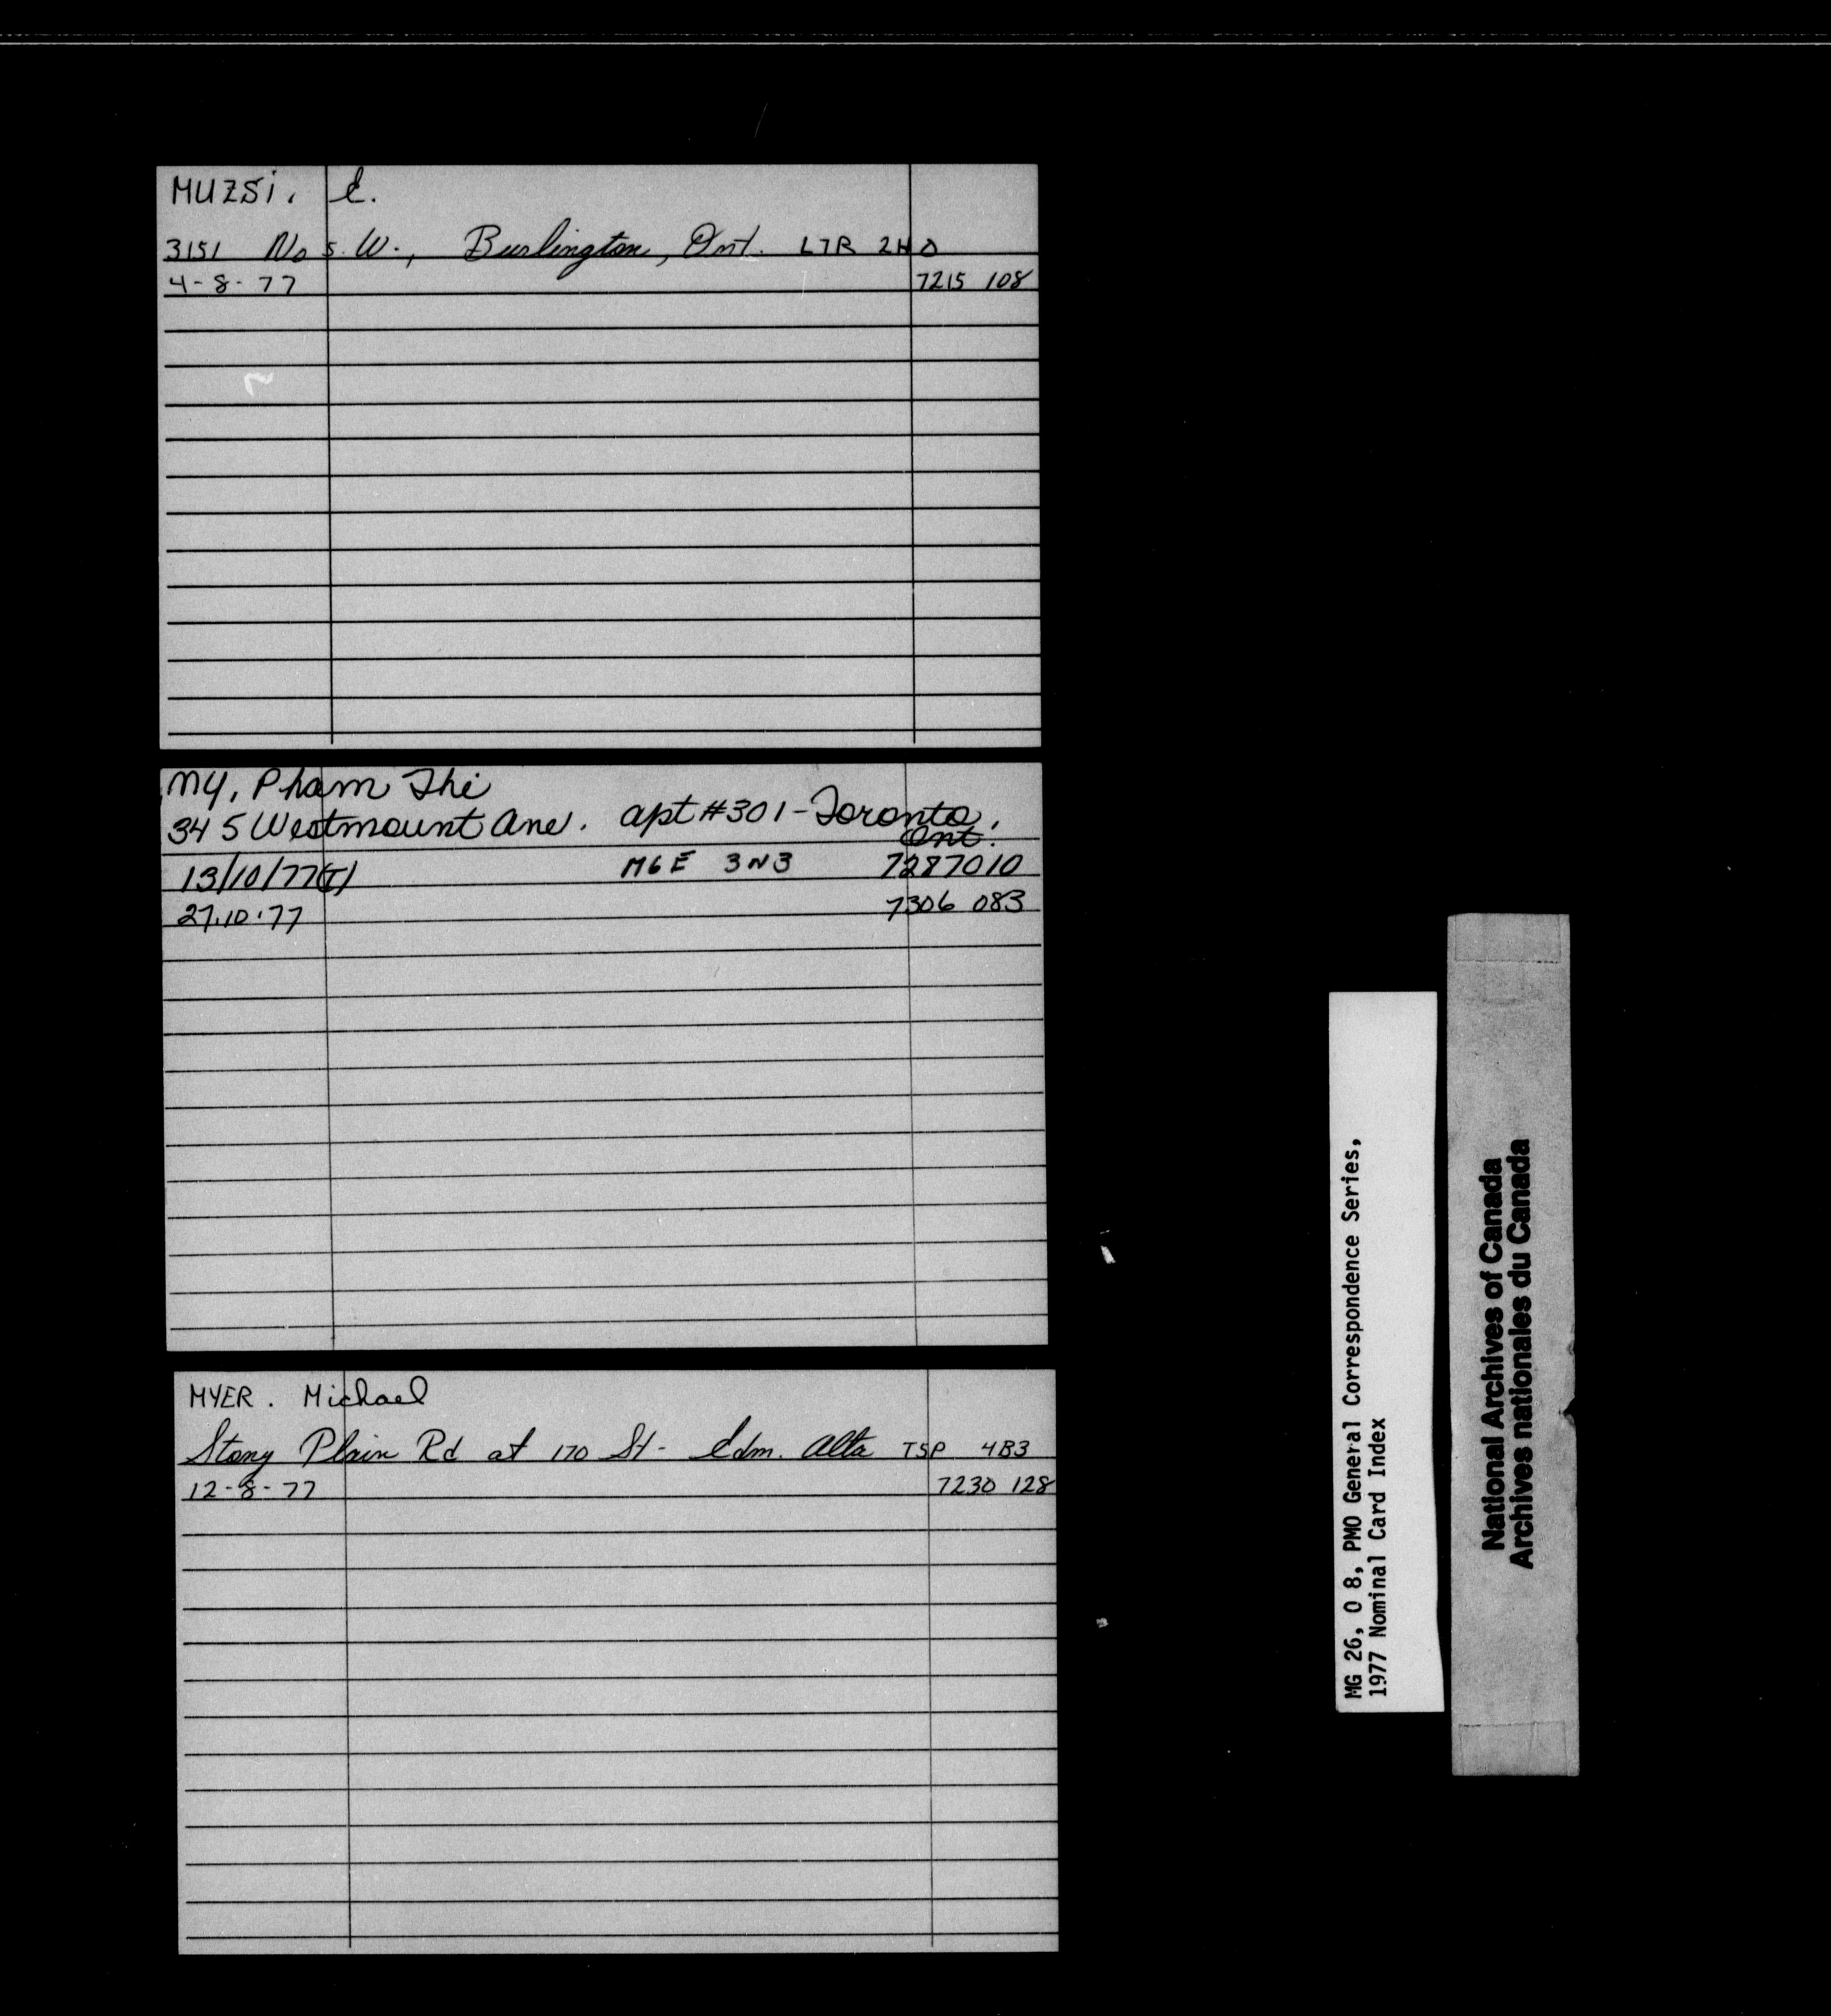 MUZSI. E.
3151 No 5. W., Burlington, Ont. L7R 2H0
4-8-77 7215 108
MY, Pham Thi
345 Westmount Ave. apt #301 - Toronto,
Ont.
13/10/77(T) M6E 3N3 7287010
27.10.77 7306 083
MYER. Michael
Stony Plain Rd at 170 St - Edm. Alta T5P 4B3
12-8-77 7230 128
MG 26, O 8, PMO General Correspondence Series,
1977 Nominal Card Index
National Archives of Canada
Archives nationales du Canada